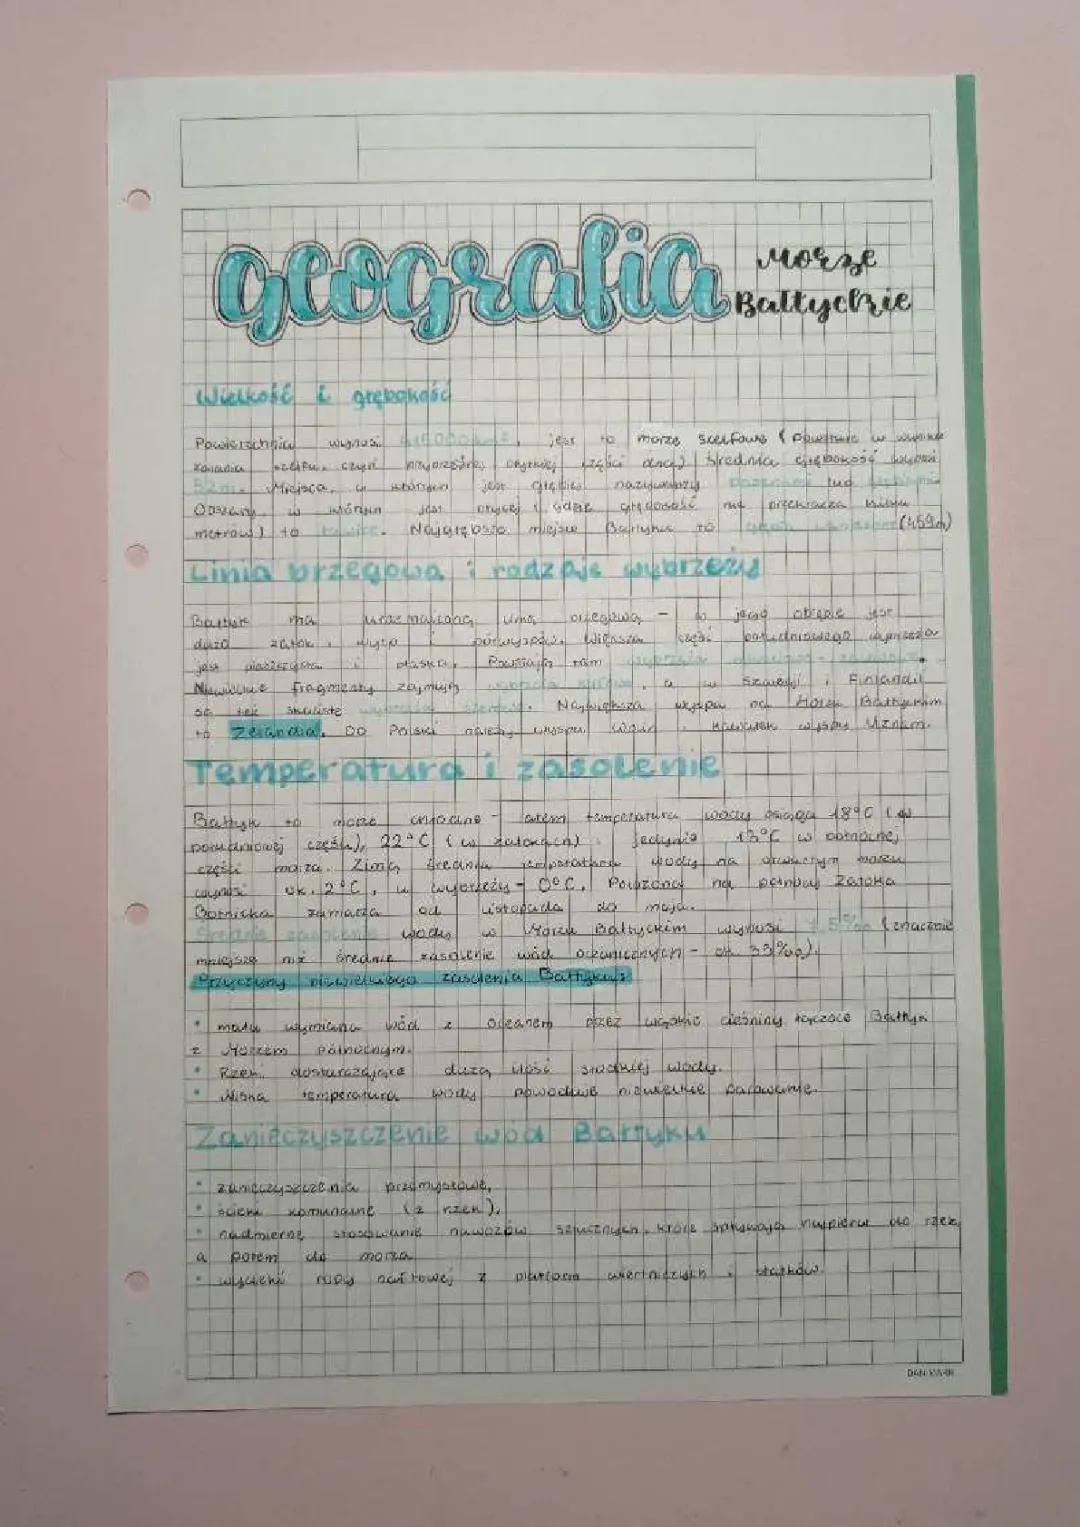 geografia
Morze
Bałtyckie
Wielkość i głębokość
Powierzchnia wynosi 415000 km², jest to morze szelfowe (powstałe w wyniku
zalania szelfu, czyli przybrzeżnej, płytkiej części dna). Średnia głębokość wynosi
52m. Miejsca, w którym jest głębiej nazywamy basenami lub głębiami.
Obszary, w którym jest płycej i gdzie głębokość nie przekracza kilku
metrów) to ławice. Najgłębsze miejsce Bałtyku to (459m)
Linia brzegowa i rodzaje wybrzeży
Bałtyk ma urozmaiconą linię brzegową - w jego obrębie jest
dużo zatok, wysp i półwyspów. Większa część południowego wybrzeża
jest piaszczysta i płaska. Powstają tam wybrzeża
Niewielkie fragmenty zajmują wybrzeża klifowe, a w Szwecji i Finlandii
są też skaliste wybrzeża szierowe. Największa wyspa na Morzu Bałtyckim
to Zelandia. Do Polski należy wyspa Wolin i kawałek wyspy Uznam.
Temperatura i zasolenie
Bałtyk to morze chłodne - latem temperatura wody osiąga 18°C (w
południowej części), 22°C (w zatokach) i jedynie 13°C w północnej
części morza. Zimą średnia temperatura wody na otwartym morzu
wynosi ok. 2°C, u wybrzeży - 0°C. Położona na północy Zatoka
Botnicka zamarza od listopada do maja.
Średnie zasolenie wody w Morzu Bałtyckim wynosi 7,5‰ (znacznie
mniejsze niż średnie zasolenie wód oceanicznych - ok. 35‰).
Przyczyny niewielkiego zasolenia Bałtyku:
• mała wymiana wód z oceanem przez wąskie cieśniny łączące Bałtyk
z Morzem Północnym.
• Rzeki dostarczające dużą ilość słodkiej wody.
• Niska temperatura wody powoduje niewielkie parowanie.
Zanieczyszczenie wód Bałtyku
• zanieczyszczenia przemysłowe,
• ścieki komunalne (z rzek),
• nadmierne stosowanie nawozów sztucznych, które spływają najpierw do rzek,
a potem do morza
• wycieki ropy naftowej z platform wiertniczych i statków.
DAN-MARK